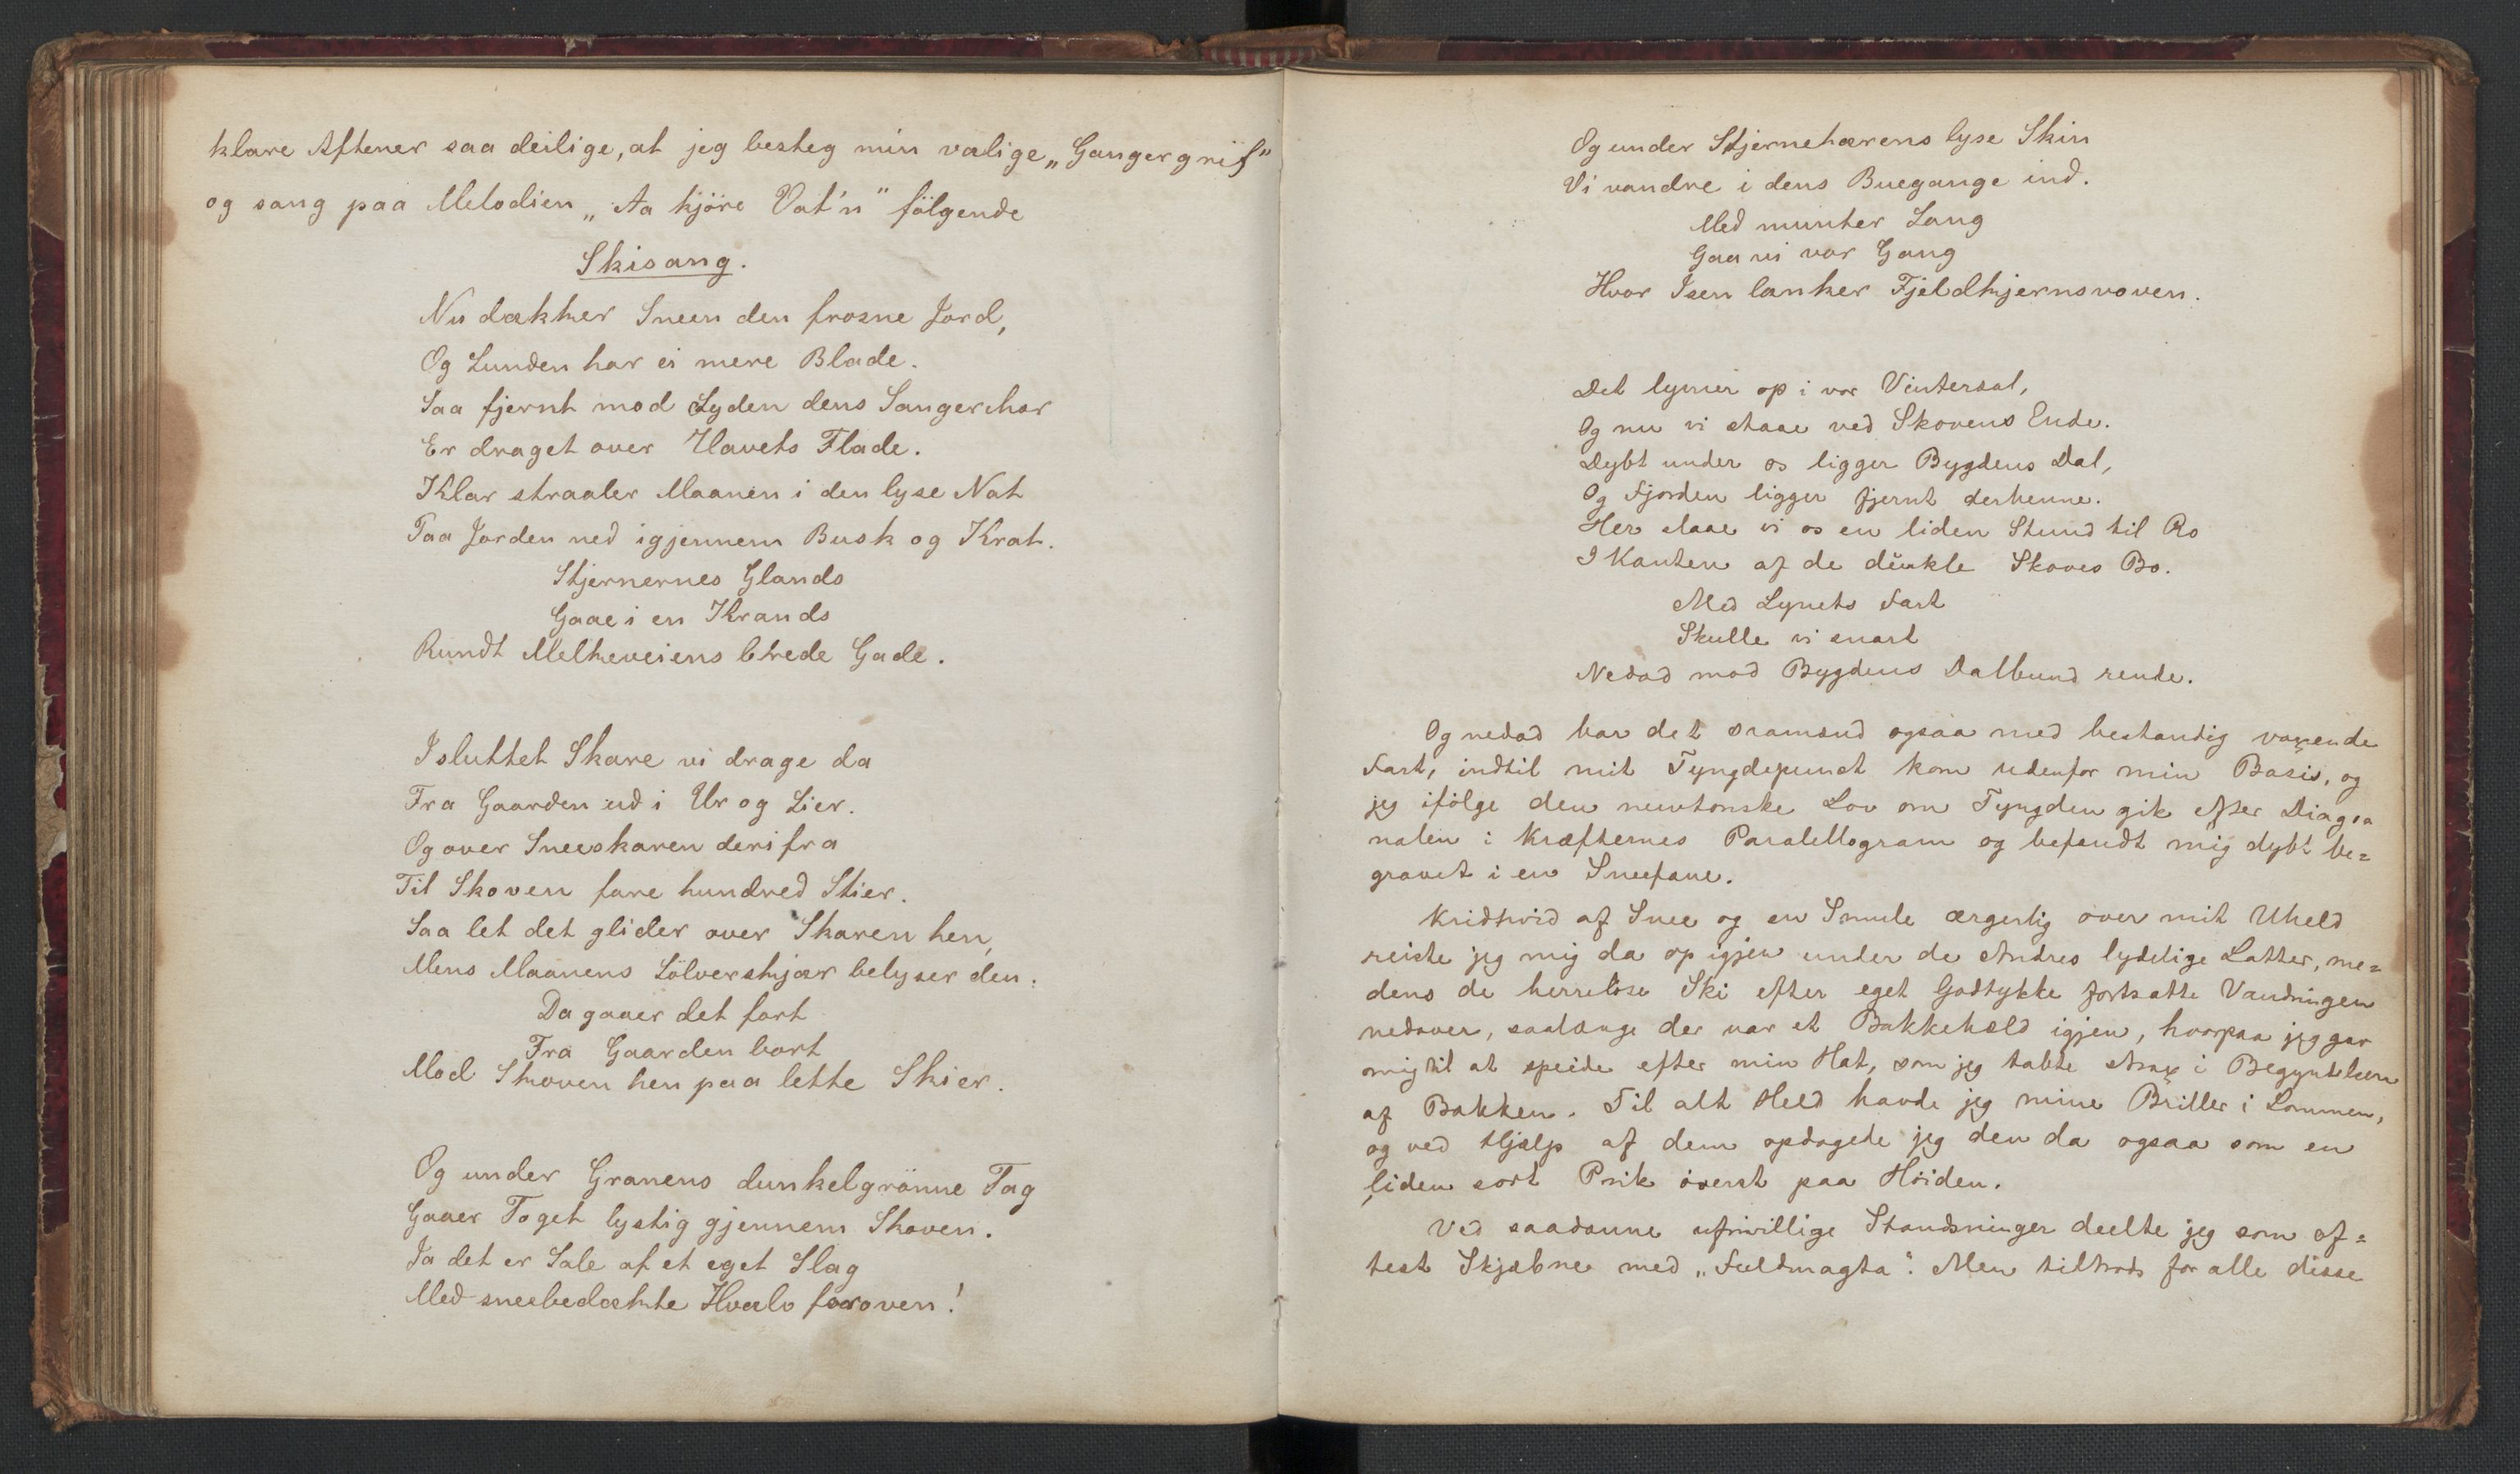 klare Aftener saa deilige, at jeg besteg min vælige „Gangergrif"
og sang paa Melodien „Aa kjøre Vat'n" følgende
Skisang.
Nu dækker Sneen den frosne Jord,
Og Lunden har ei mere Blade.
Saa fjernt mod Syden dens Sangerchor
Er draget over Havets Flade.
Klar straaler Maanen i den lyse Nat
Paa Jorden ned igjennem Busk og Krat.
Stjernernes Glands
Gaae i en Krands
Rundt Melkeveiens brede Gade.
I sluttet Skare vi drage da
Fra Gaarden ud i Ur og Lier.
Og over Sneeskaren derifra
Til Skoven fare hundred Stier.
Saa let det glider over Skaren hen,
Mens Maanens Sölverskjær belyser den.
Da gaaer det fort
Fra Gaarden bort
Mod Skoven hen paa lette Skier.
Og under Granens dunkelgrönne Tag
Gaaer Toget lystig gjennem Skoven.
Ja det er Sale af et eget Slag
Med sneebedækte Hvælv foroven!
Og under Stjernehærens lyse Skin
Vi vandre i dens Buegange ind.
Med munter Sang
Gaa vi vor Gang
Hvor Isen lænker Fjeldkjernsvoven.
Det lysner op i vor Vintersal,
Og nu vi staae ved Skovens Ende.
Dybt under os ligger Bygdens Dal,
Og Fjorden ligger fjernt derhenne.
Her staae vi os en liden Stund til Ro
I Kanten af de dunkle Skoves Bo.
Med Lynets Fart
Skulle vi snart
Nedad mod Bygdens Dalbund rende.
Og nedad bar det dramænd ogsaa med bestandig voxende
Fart, indtil mit Tyngdepunct kom udenfor min Basis, og
jeg ifölge den newtonske Lov om Tyngden gik efter Diago
nalen i Kræfternes Paralellogram og befandt mig dybt be=
gravet i en Sneefane.
Kridhvid af Snee og en Smule ærgerlig over mit Uheld
reiste jeg mig da op igjen under de Andres lydelige Latter, me=
dens de herrelöse Ski efter eget Godtykke fortsatte Vandringen
nedover, saalænge der var et Bakkehæld igjen, hvorpaa jeg gav
mig til at speide efter min Hat, som jeg tabte strax i Begyndelsen
af Bakken. Til alt Held havde jeg mine Briller i Lommen,
og ved Hjælp af dem opdagede jeg den da ogsaa som en
liden sort Prik överst paa Höiden.
Ved saadanne ufrivillige Standsninger deelte jeg som of=
test Skjæbne med „Fuldmagta". Men tiltrods for alle disse